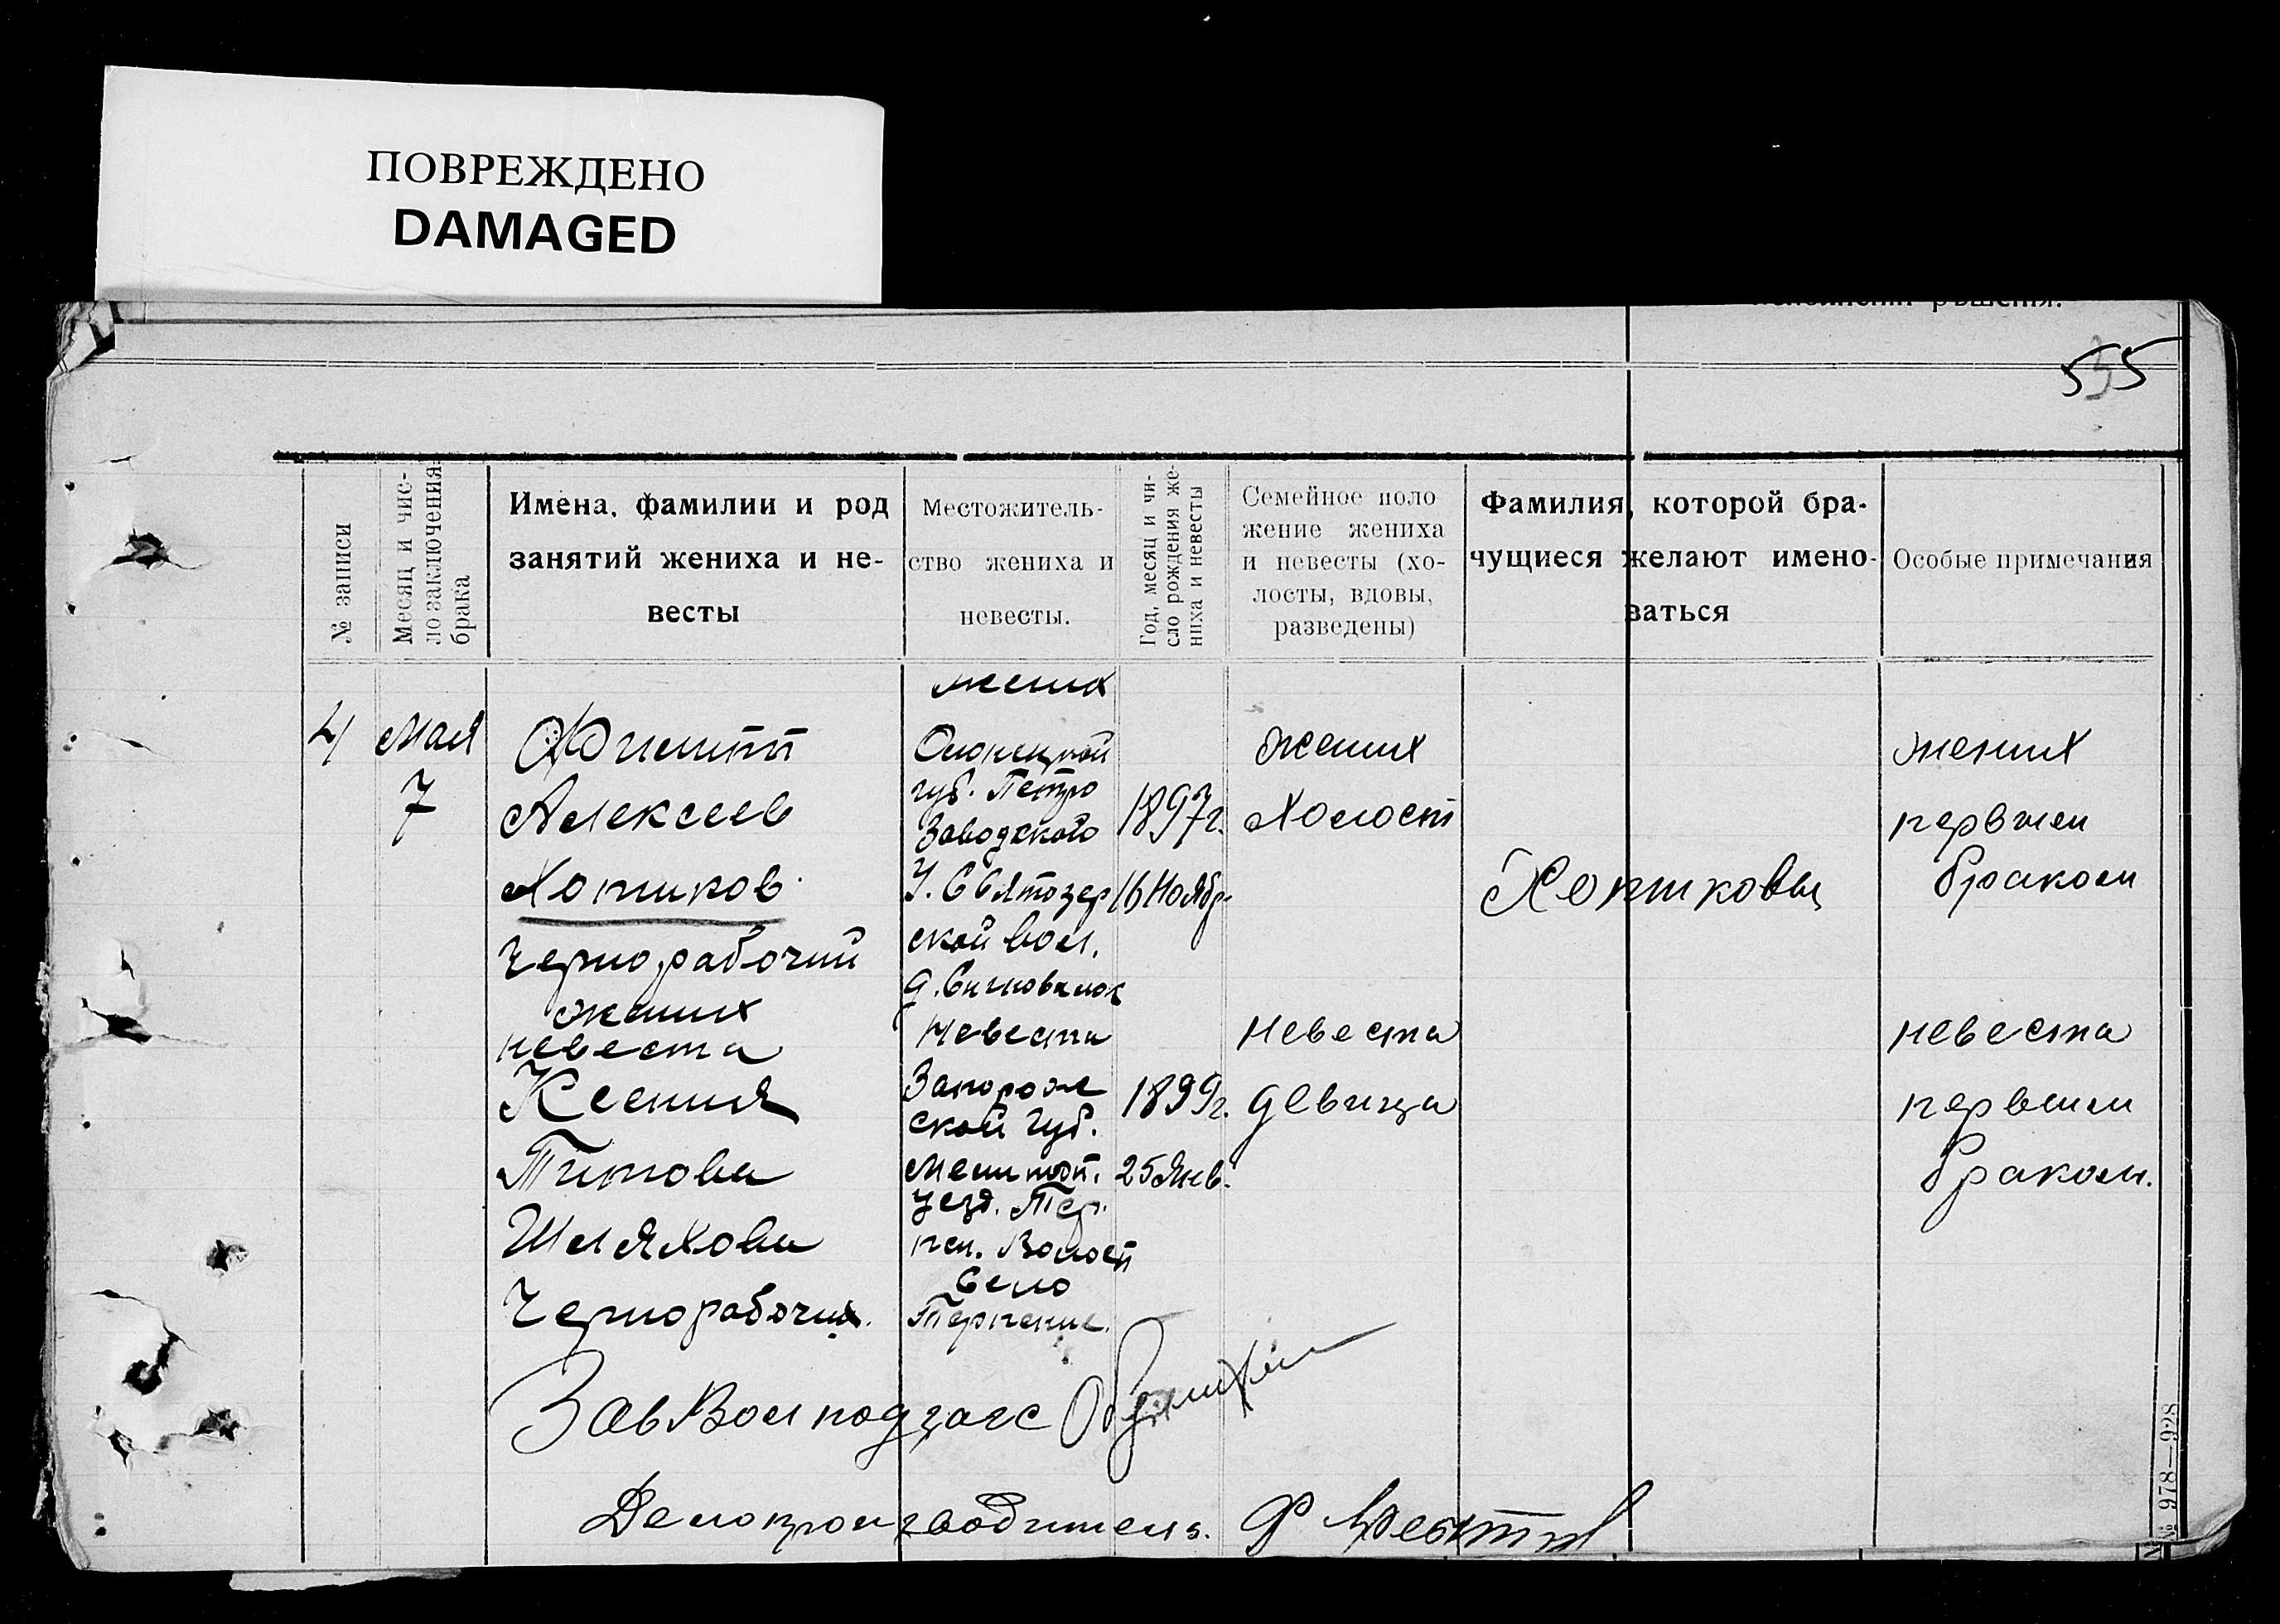 ПОВРЕЖДЕНО
DAMAGED
55
№ записи
Месяц и чис-
ло заключения
брака
Имена, фамилии и род
занятий жениха и не-
весты
Местожитель-
ство жениха и
невесты.
Год, месяц и чи-
сло рождения же-
ниха и невесты
Семейное поло
жение жениха
и невесты (хо-
лосты, вдовы,
разведены)
Фамилия, которой бра-
чущиеся желают имено-
ваться
Особые примечания
4
Мая
7
Филипп
Алексеев
Хопиков
Чернорабочий
жених
невеста
Ксения
Титова
Шляхова
Чернорабочия.
жених
Олонецкой
губ. Петро
Заводского
У. Святозер
ской вол.
д.
Невеста
Запорож
ской Губ.
Мелитоп.
Уезд. Тер.
пен. Волост
Село
Терпение.
1897г.
16 Ноябр.
1899г.
25 Янв.
жених
Холост
Невеста
девица
Хопиковы
жених
первым
браком
невеста
первым
браком.
Зав Волподзагс
Делопроизводитель.
№ 978—928